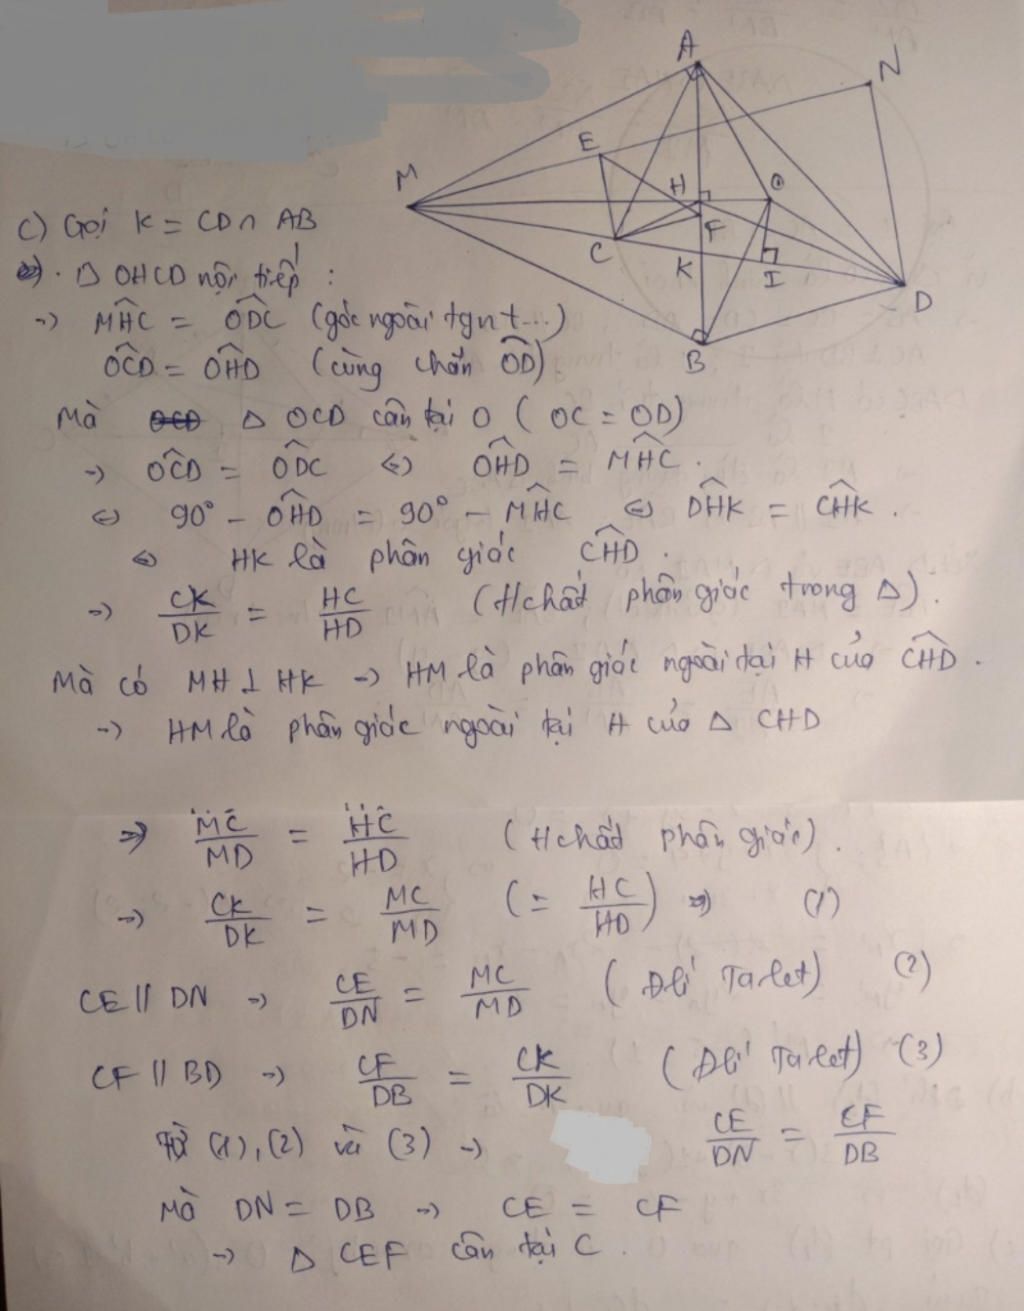 A
N
E
M
H
O
F
C
K
I
D
B
c) Gọi K = CD ∩ AB
. □ OHCD nội tiếp :
-> MĤC = OD̂C (góc ngoài tgnt...)
OĈD = OĤD (cùng chắn OD)
Mà OCD Δ OCD cân tại O ( OC = OD)
-> OĈD = OD̂C <=> OĤD = MĤC .
<=> 90° - OĤD = 90° - MĤC <=> DĤK = CĤK .
<=> HK là phân giác CĤD .
-> CK/DK = HC/HD (t/chất phân giác trong Δ) .
Mà có MH ⊥ HK -> HM là phân giác ngoài tại H của CĤD .
-> HM là phân giác ngoài tại H của Δ CHD
=> MC/MD = HC/HD (t/chất phân giác) .
-> CK/DK = MC/MD (= HC/HD) => (1)
CE // DN -> CE/DN = MC/MD ( Đlí Talet) (2)
CF // BD -> CF/DB = CK/DK ( Đlí Talet) (3)
Từ (1), (2) và (3) -> CE/DN = CF/DB
Mà DN = DB -> CE = CF
-> Δ CEF cân tại C .